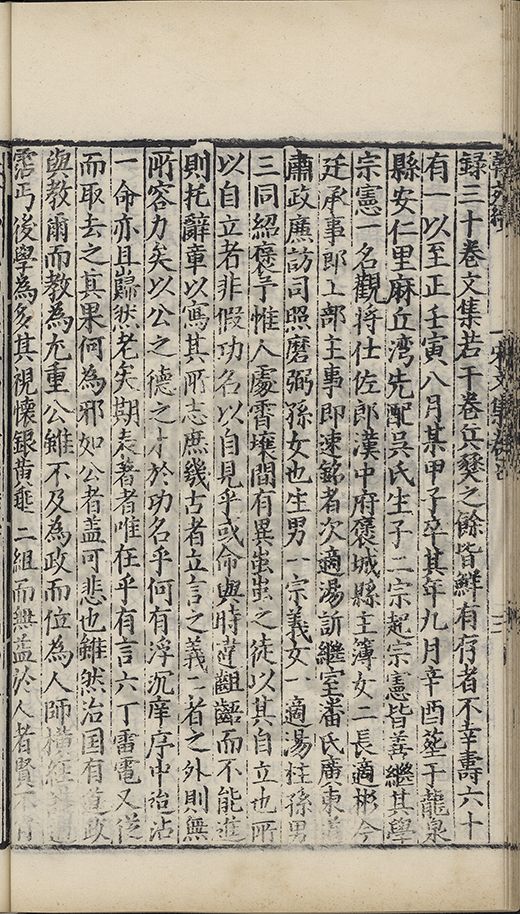 録三十卷文集若干卷兵燹之餘皆鮮有存者不幸壽六十
有一以至正壬寅八月某甲子卒其年九月辛酉塟于龍泉
縣安仁里麻丘湾先配吳氏生子二宗起宗憲皆善繼其學
宗憲一名觀將仕佐郎漢中府褒城縣主簿女二長適彬今
廷承事郎工部主事即速銘者次適湯訢繼室潘氏廣東道
肅政廉訪司照磨弼孫女也生男一宗義女一適湯柱孫男
三同紹褒予惟人處霄壤間有異蚩蚩之徒以其自立也所
以自立者非假功名以自見乎或命與時違齟齬而不能進
則托辭章以寫其所志庶幾古者立言之義二者之外則無
所容力矣以公之德之才於功名乎何有浮沉庠序中迨沾
一命亦且巋然老矣期表著者唯在乎有言六丁雷電又從
而取去之其果何為邪如公者盖可悲也雖然治国有道政
與教爾而教為尤重公雖不及為政而位為人師橫經
霑丐後學為多其視懷銀黃垂二組而無益於人者賢